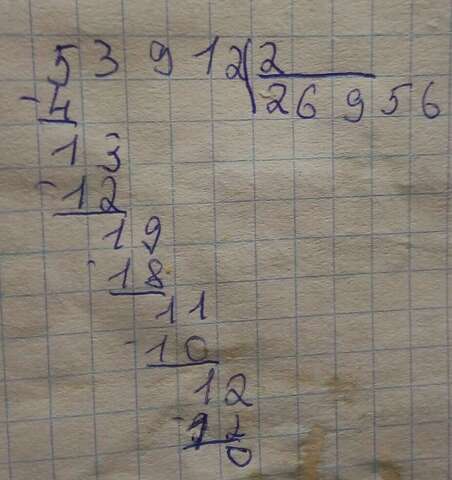 53912 2
26956
-4
13
-12
19
-18
11
-10
12
-12
0